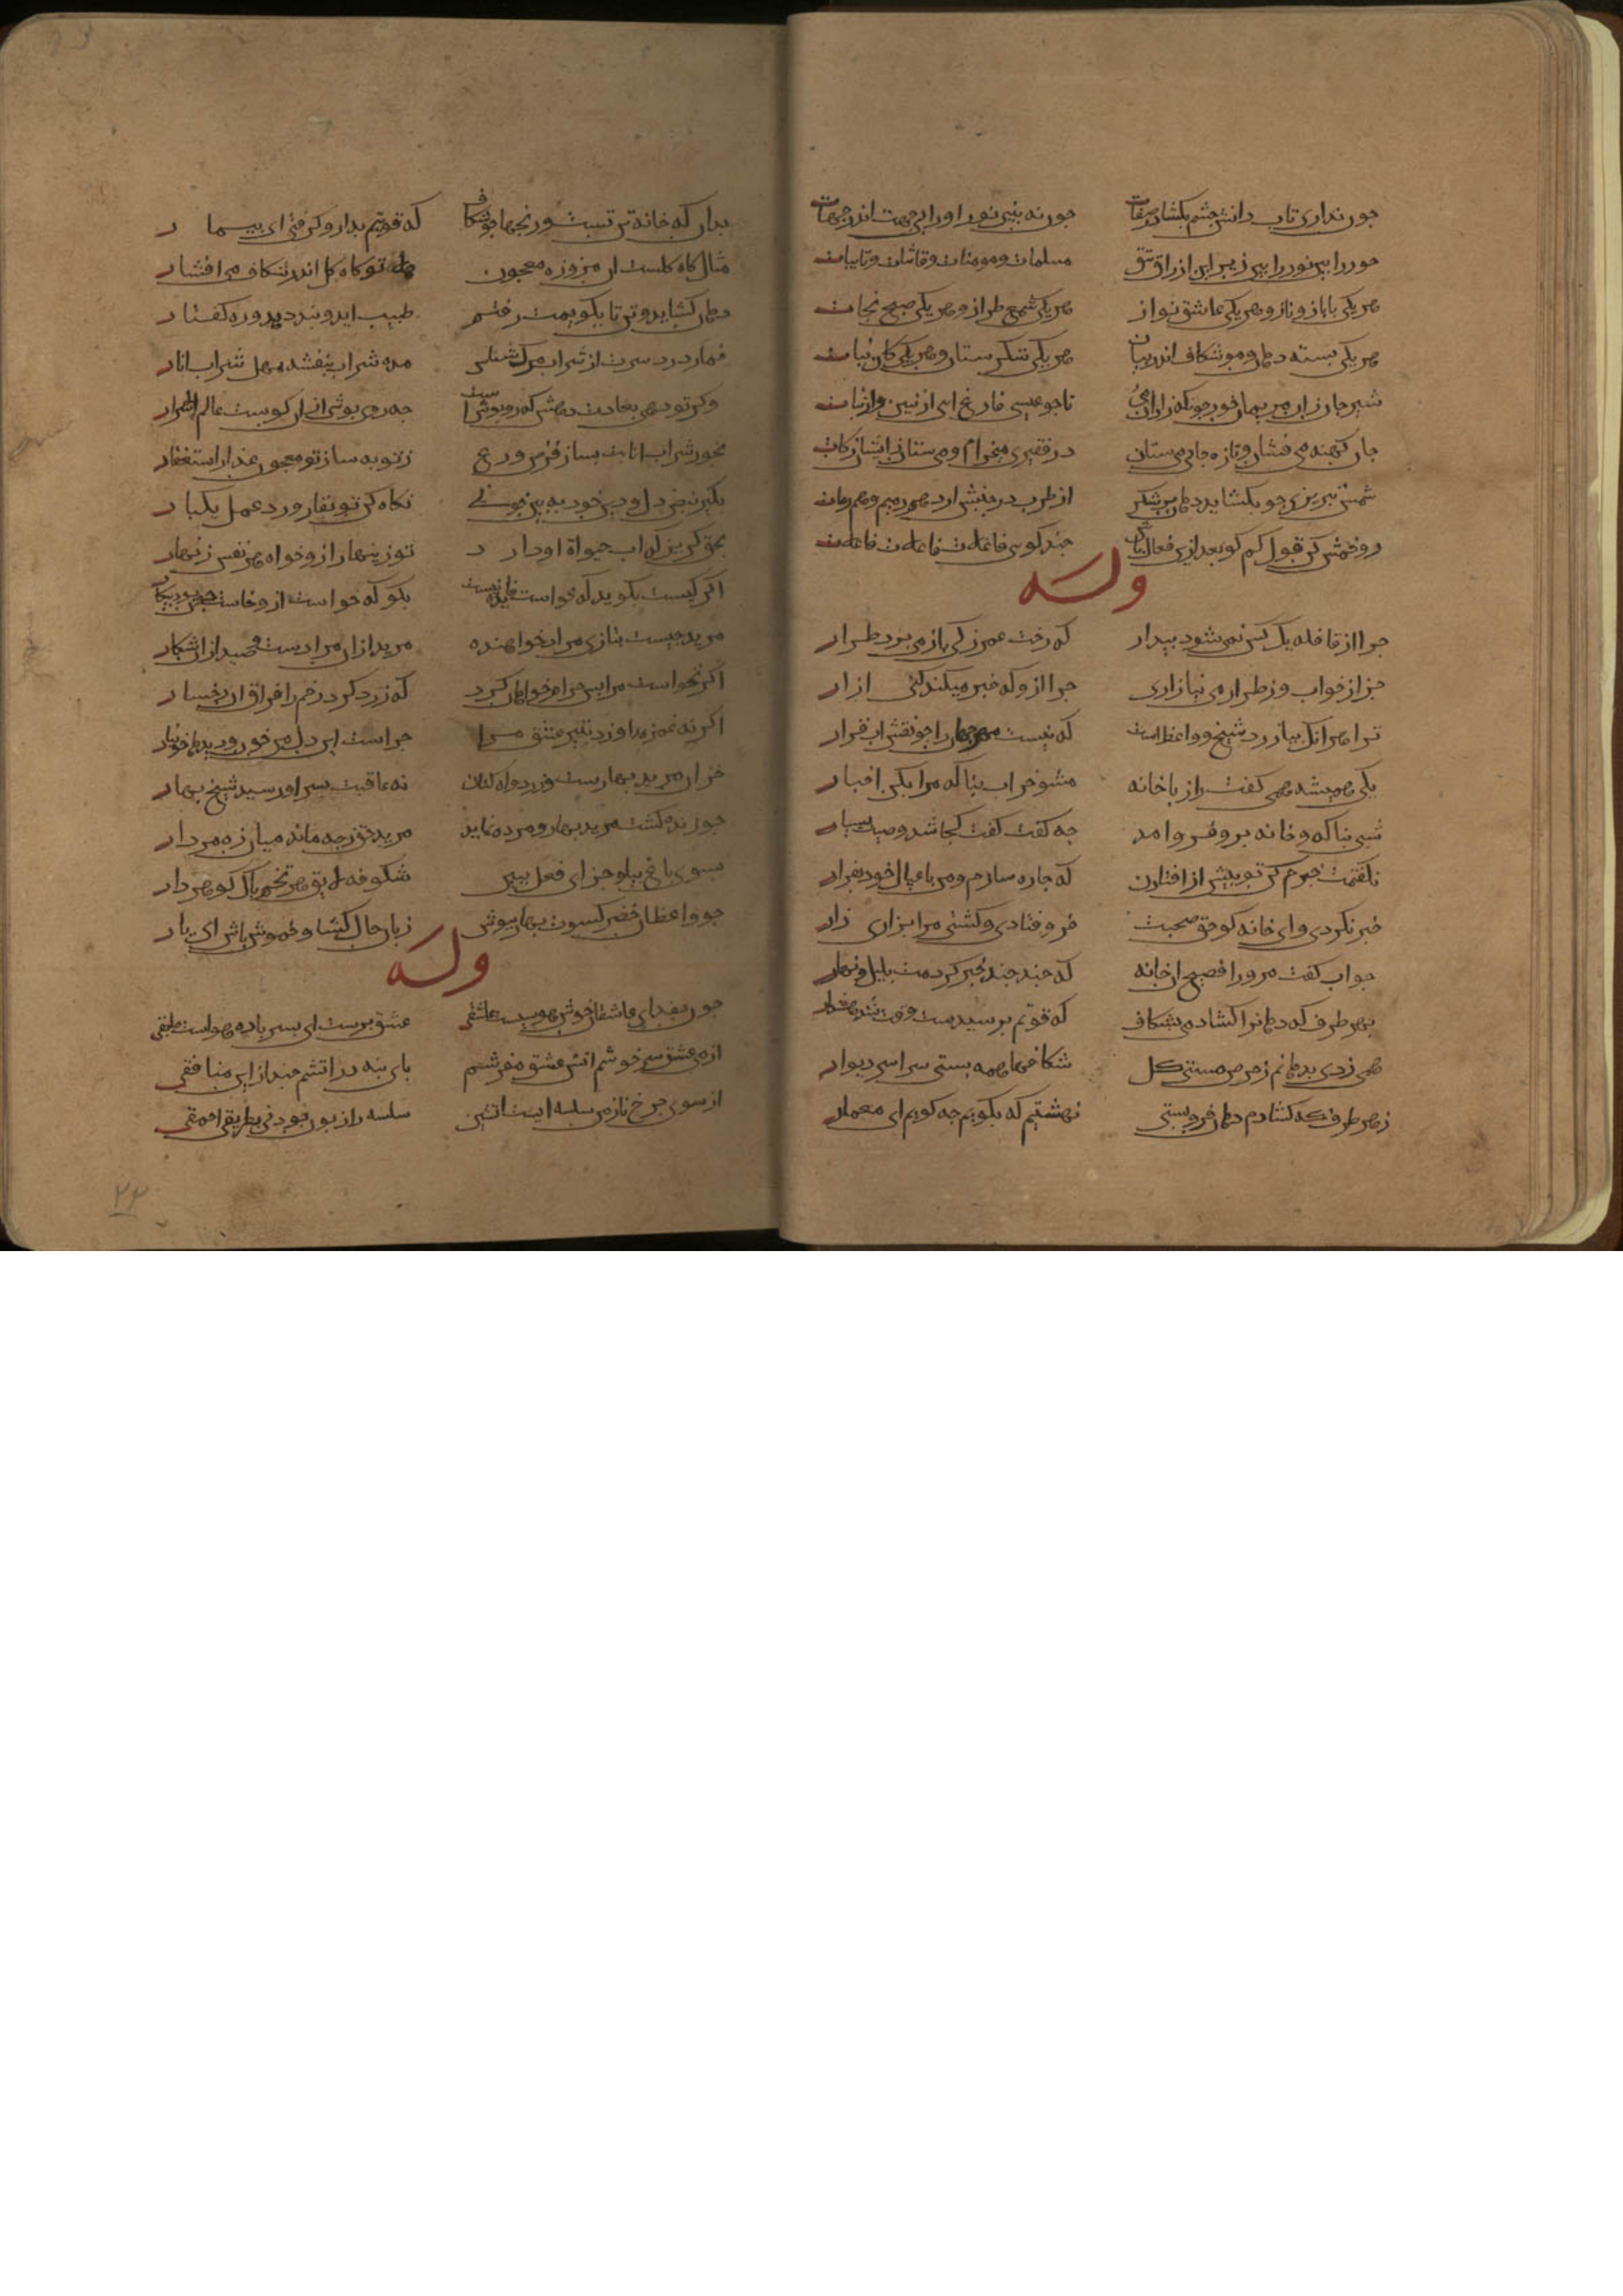 چون نداری تاب دانش چشم بکشا در صفات چون نه بینی نور او را بی جهت اندر جهات
حور را بین نور را بین زیر این ازرق تتق مسلمات و مومنات و قانتات و تایبات
هر یکی با باز و ناز و هر یکی عاشق نواز هر یکی شمع طراز و هر یکی صبح نجات
هر یکی بسته دهان و موشکاف اندر بیان هر یکی شکرستان و هر یکی کان نبات
شیر جان زان خور تا چو عیسی فارغ آیی از بنین و از بنات
جان کهنه می فشان و تازه جان می ستان در فقیری میخرام و می ستان زایشان زکات
شمس تبریزی چو بکشاید دهان پر شکر از طرب در جنبش ارد هم رمیم و هم رفات
رو خمش کن قول کم کو بعد ازین فعال باش چند کویی فاعلات فاعلات فاعلات
وله
چرا از قافله یک کس نمی شود بیدار که رخت عمر ز کی باز می برد طرار
چرا ز خواب و ز طرار می نیازاری چرا ازو که خبر میکند کنی ازار
ترا هر انک بیازرد شیخ و واعظ تست که نیست مهر جهان را چو نقش اب قرار
یکی همیشه همی کفت راز با خانه مشو خراب بناکه مرا بکن اخبار
شبی بناکه خانه برو فرو آمد چه کفت کفت کجا شد وصیت بسیار
نکفتمت خبرم کن تو پیش از افتادن که چاره سازم و من با عیال خود بفرار
خبر نکردی وای خانه کو حق صحبت فرو فتادی و کشتی مرا بزاری زار
جواب کفت مر او را فصیح ان خانه که چند چند خبر کردمت بلیل و نهار
بهر طرف که دهانرا کشادمی بشکاف که قوتم برسیدست وقت شد هش دار
همی زدی بدهانم ز حرص مشتی کل شکافها همه بستی سراسر دیوار
ز هر طرف که کشادم دهان فرو بستی نهشتیم که بکویم چه کویم ای معمار
بدان که خانه تن تست و رنجها چو شکاف که قوتم بدارو کرفتی ای بیمار
مثال کاه و کلست ان مزوره معجون هله تو کاه کل اندر شکاف می افشار
دهان کشاید تن تا بکویمت رفتم طبیب اید و بندد برو ره کفتار
خمار درد سرت از شراب مرک شناس مده شراب بنفشه بهل شراب انار
وکر تو دهی بعادت دهش که روپوش است چه روی پوشی از ان کوست عالم الاسرار
بخور شراب انابت بساز قرص ورع ز توبه ساز تو معجون غذا ز استغفار
بکیر نبض دل و دین خود ببین چونی نکاه کن تو بقاروره عمل یکبار
بحق کریز که اب حیوة او دارد تو زینهار ازو خواه هر نفس زنهار
اکر کسیت بکوید که خواست فایده نیست بکو که خواست ازو خاست چون بود بیکار
مرید چیست بتازی مرید خواهنده مرید از ان مرادست و صید از ان شکار
اکر نخواست مرا پس چرام خواهان کرد که زرد کرد رخم را فراق ان رخسار
اکر نه غمزه او زد بتیر عشق مرا چراست این دل من خون و دیده ام خونبار
خزان مرید بهارست زرد و اه کنان نه عاقبت بسر او رسید شیخ بهار
چو زنده کشت مرید بهار و مرده نماند مرید حق ز چه ماند میان ره مردار
بسوی باغ بیا و جزای فعل ببین شکوفه لایق هر تخم پاک کوهردار
چو واعظان خضر کسوت بهار بپوش زبان حال کشا و خموش باش ای یار
وله
چون بفدای عاشقان خوش هوسیست عاشقی عشق پرست ای پسر باده هواست مابقی
از می عشق سرخوشم اتش عشق مفرشم پای بنه در اتشم چند از این منافقی
از سوی چرخ تا زمین سلسله ایست اتشین سلسله را